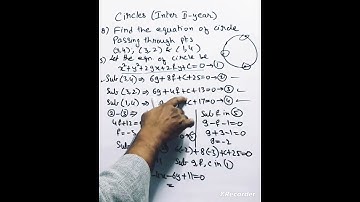 Circles (Inter II-year)
8) Find the equation of circle
Passing through pts
(3,4), (3,2) & (1,4)
S) Let the eqn of circle be
x²+y²+2gx+2fy+c=0→①
Sub (3,4) ⇒ 6g+8f+c+25=0→②
Sub (3,2) ⇒ 6g+4f+c+13=0→③
Sub (1,4) ⇒ +c+17=0→④
②-③
4f+12=
f=-3
Sub f in ⑤
g-f-1=0
g+3-1=0
g=-2
(-2)+8(-3)+c+25=0
Sub g,f,c in ①
-6y+11=0
Recorder